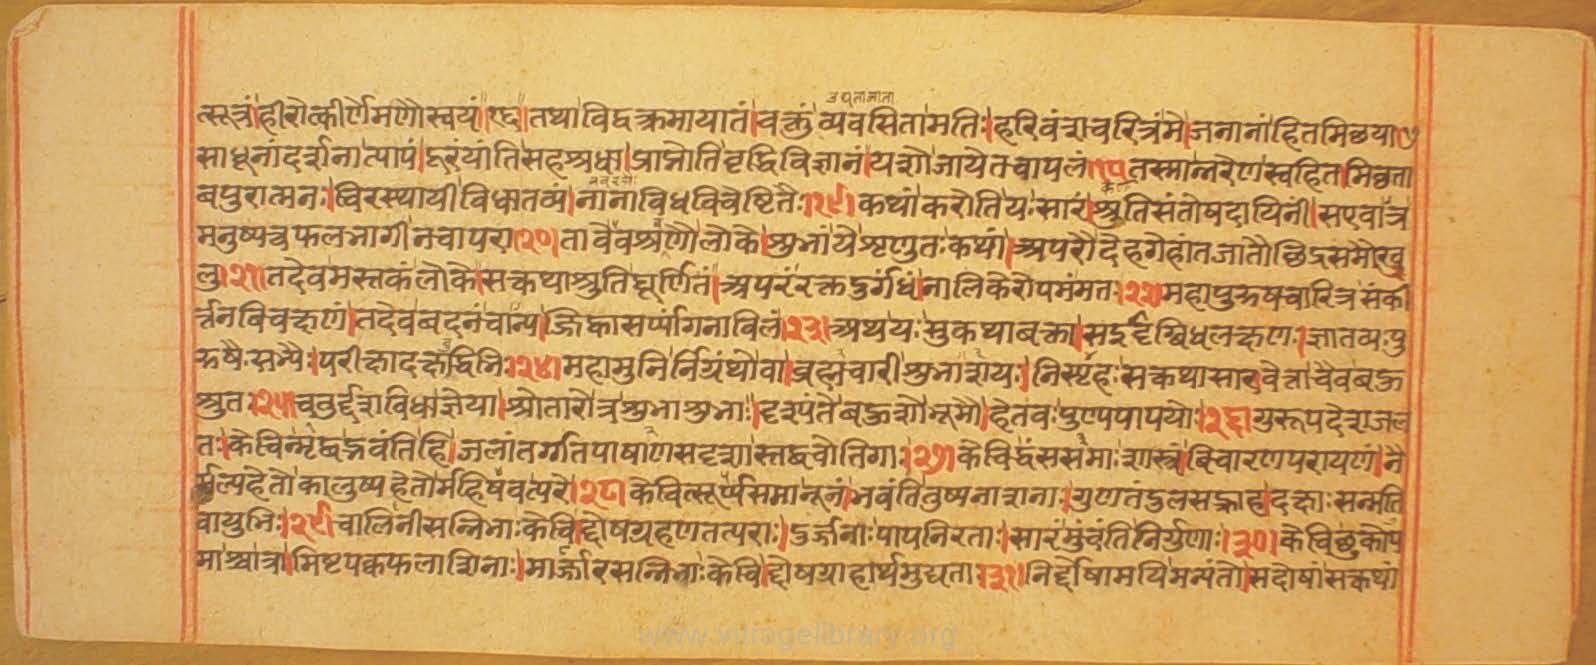 उद्यतामाता
त्सूत्रं।हीरोत्कीर्णेमणौस्वयं॥१६॥तथाविद्वक्रमायातं।वक्तुंव्यवसितामतिः।हरिवंशचरित्रंमे।जनानांहितमिछया१७
साधूनांदर्शनात्पापं।दूरंयातिसहश्रधा।प्राप्नोतिवृद्धिविज्ञानं।यशोजायेतचापलं।१८तस्मान्नरेणस्वहितमिछता
बपुरात्मनः।चिरस्थायीविधातव्यं।नानाविधविचेष्टितैः।१९।कथांकरोतियःसारं।श्रुतिसंतोषदायिनीं।सएवात्र
मनुष्यत्वफलभागीनचापरः।२०।तावेवश्रणौलोके।शुभांयेशृणुतःकथां।अपरौदेहगेहांतजातौछिद्रसमौखु
लु।२१।तदेवमस्तकंलोके।सत्कथाश्रुतिघूर्णितं।अपरंरक्तदुर्गंधं।नालिकेरोपमंमतः।२२।महापुरुषचारित्रसंकी
र्त्तनविचक्षणं।तदेवबदनंचान्य।ज्जिह्वासर्प्पांगनाविलं।२३।अथयःसुकथाबक्ता।सदृदृष्विधलक्षणः।ज्ञातव्यःपु
रुषैःसभ्यैः।परीक्षादक्षबुद्धिभिः।२४।महामुनिर्निग्रंथोवा।ब्रह्मचारीशुभाशयः।निस्पृहःसकथासारवेत्ताचैवबऊ
श्रुतः।२५।चतुर्द्दशविधाज्ञेया।श्रोतारोत्रशुभाशुभाः।दृश्यंतेबऊशोभूमौ।हेतवःपुण्यपापयोः।२६।गुरूपदेशजल
तः।केचिन्मृद्वद्भवंतिहि।जलांतर्गतपाषाणसदृशास्तद्वचोतिगाः।२७।केचिद्धंससमाःशास्त्रविचारणपरायणं।नै
र्मल्यहेतोकालुष्यहेतोर्महिषवत्परे।२८।केचित्सूर्प्पसमानूनं।भवंतितुष्यनाशनाः।गुणतंदुलसद्ग्राहदक्षाः।सन्मति
वायुभिः।२९।चालिनीसन्निभाःकेचि।द्दोषग्रहणतत्पराः।दुर्जनाःपापनिरताः।सारंमुंचंतिनिर्गुणाः।३०।केचिछुकोप
माश्चात्रा।मिष्टपक्वफलाशिनाः।मार्ज्जारसन्निभाःकेचि।द्दोषग्राहार्थमुद्यताः।३१।निर्द्दोषामयिमन्यंतो।सदोषांसत्कथां
www.vitragelibrary.org